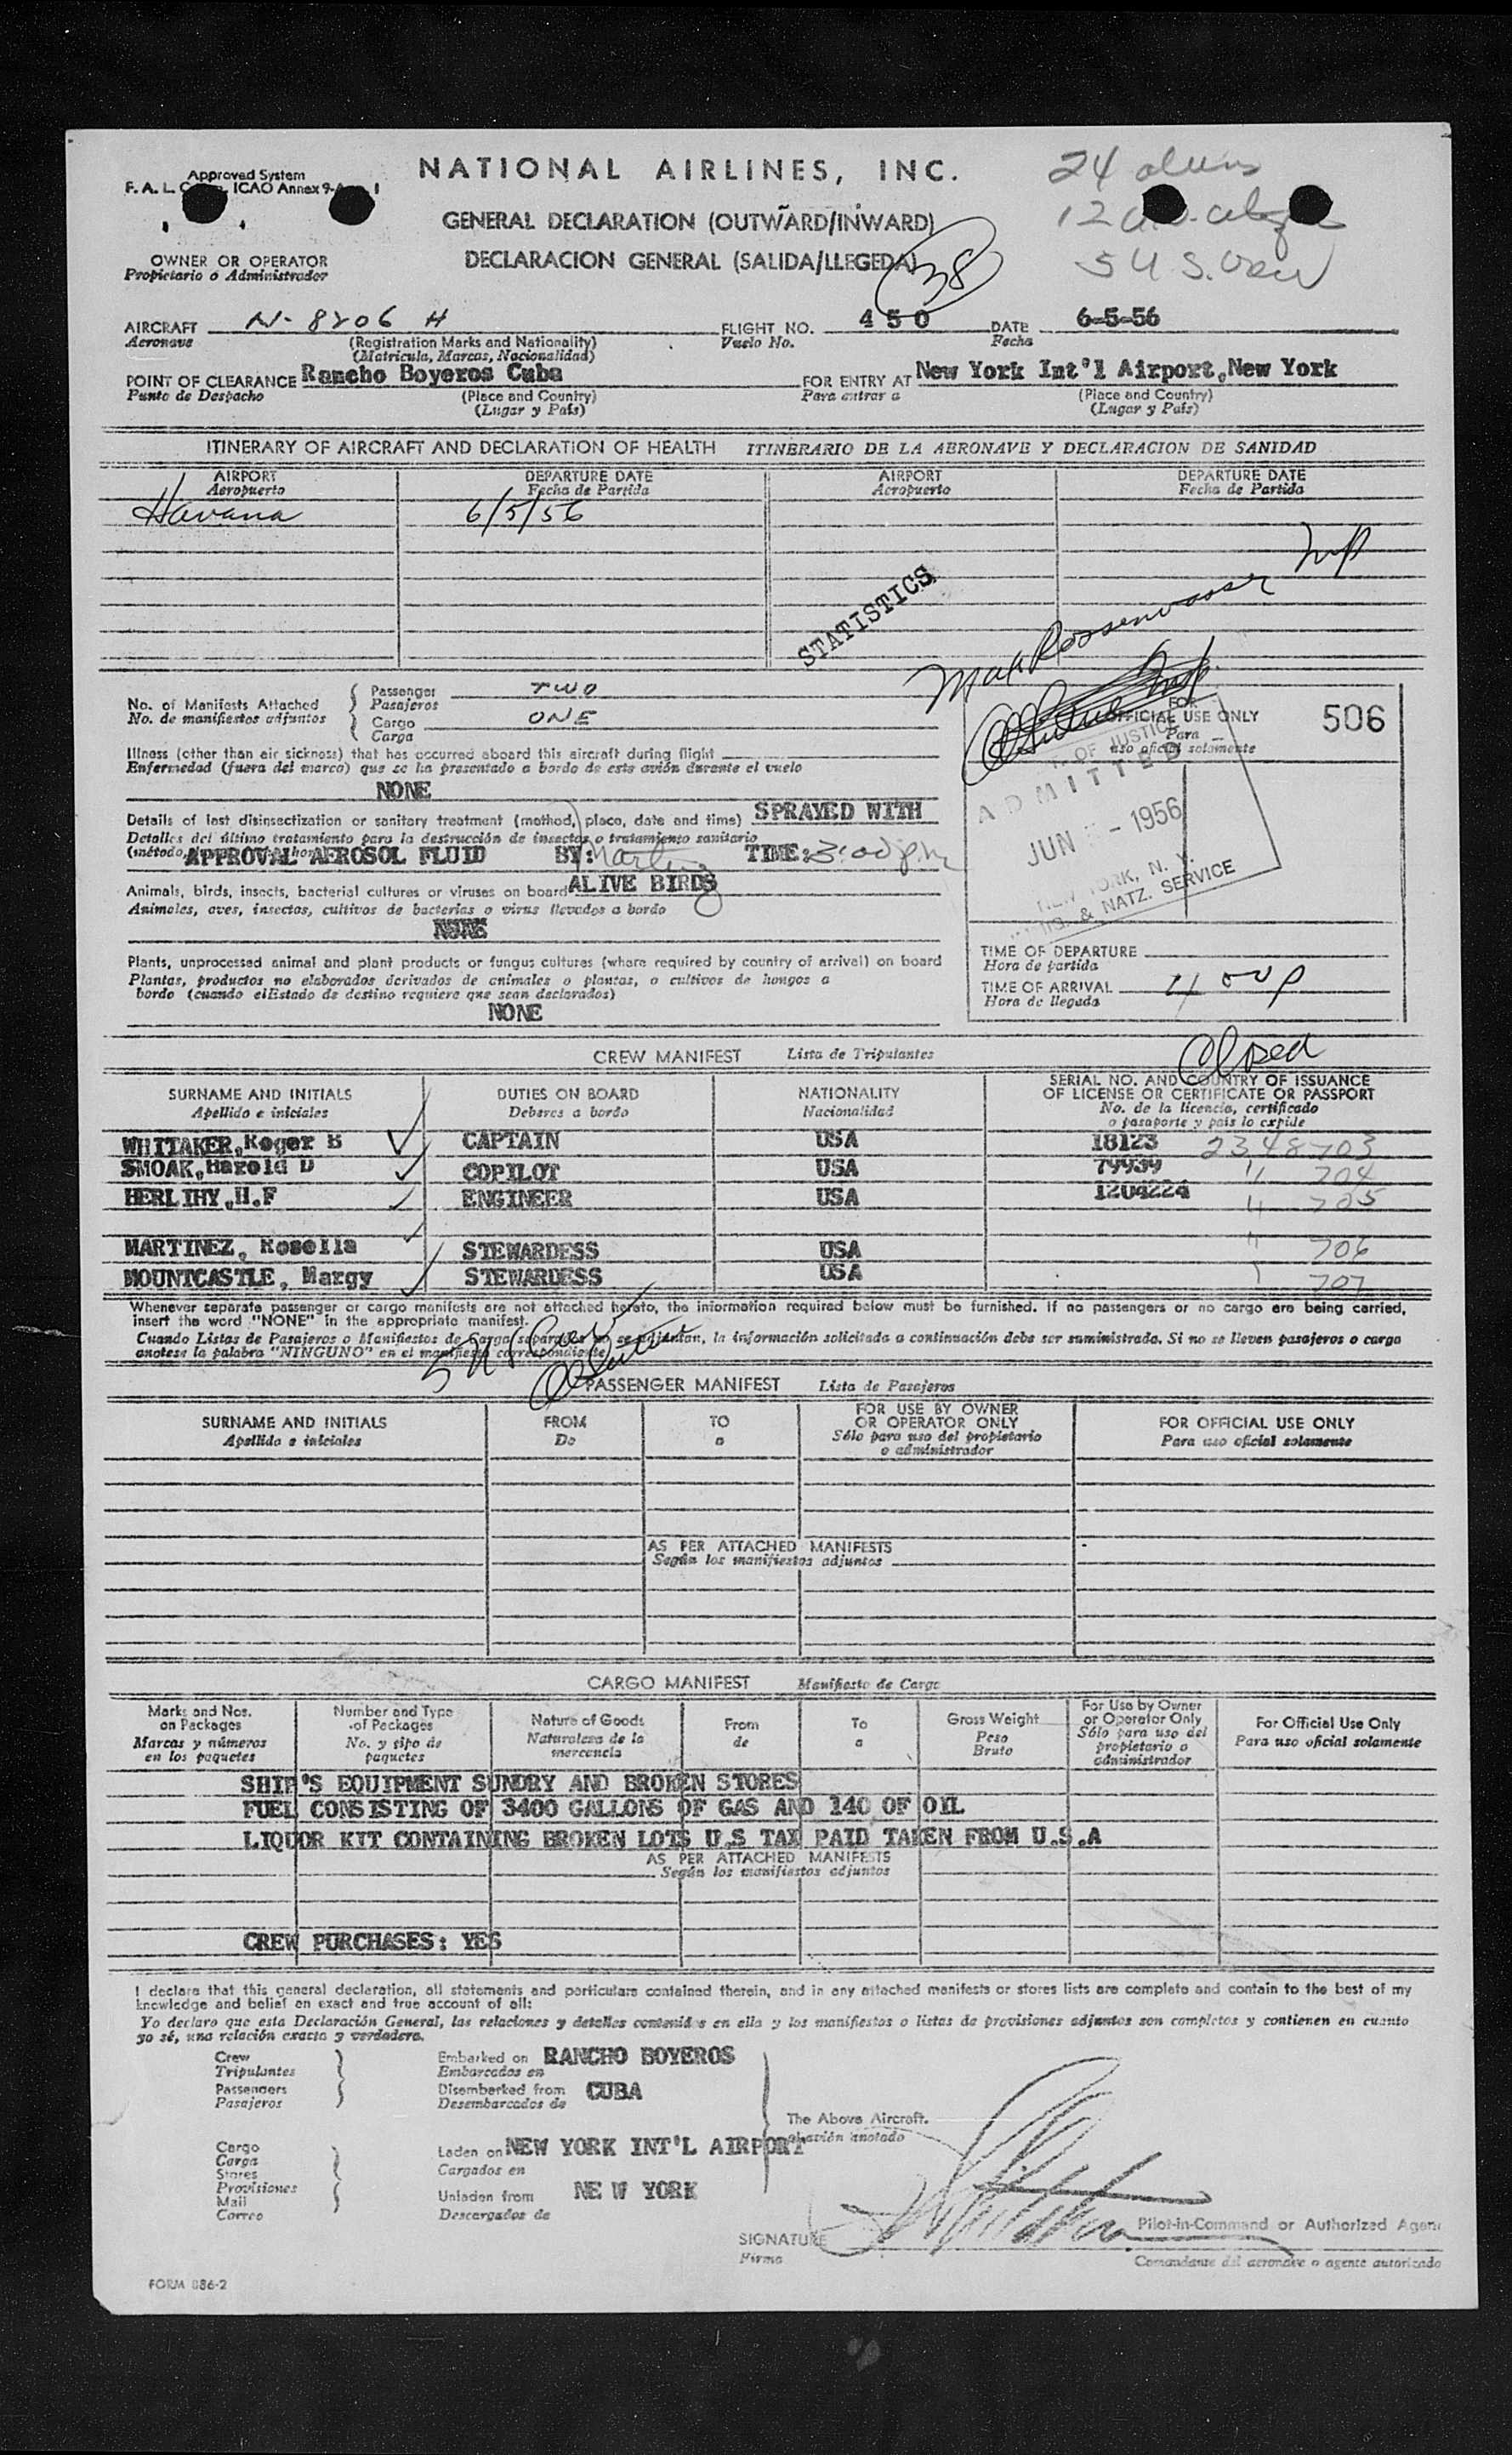 Approved System
NATIONAL AIRLINES, INC.
24 aliens
F. A. L. ICAO Annex 9-
12
GENERAL DECLARATION (OUTWARD/INWARD)
5 U S.
OWNER OR OPERATOR
Propietario ó Administrador
DECLARACION GENERAL (SALIDA/LLEGEDA)
38
AIRCRAFT N-8206 H FLIGHT NO. 450 DATE 6-5-56
Aeronave (Registration Marks and Nationality) Vuelo No. Fecha
(Matricula, Marcas, Nacionalidad)
POINT OF CLEARANCE Rancho Boyeros Cuba FOR ENTRY AT New York Int'l Airport, New York
Punto de Despacho (Place and Country) Para entrar a (Place and Country)
(Lugar y País) (Lugar y País)
ITINERARY OF AIRCRAFT AND DECLARATION OF HEALTH ITINERARIO DE LA AERONAVE Y DECLARACION DE SANIDAD
AIRPORT DEPARTURE DATE AIRPORT DEPARTURE DATE
Aeropuerto Fecha de Partida Aeropuerto Fecha de Partida
Havana 6/5/56
STATISTICS
No. of Manifests Attached
No. de manifiestos adjuntos
Passenger TWO
Pasajeros
Cargo ONE
Carga
FOR
OFFICIAL USE ONLY 506
Para
uso oficial solamente
Illness (other than air sickness) that has occurred aboard this aircraft during flight
Enfermedad (fuera del marco) que se ha presentado a bordo de este avión durante el vuelo
NONE
OF JUSTICE
ADMITTED
JUN - 1956
YORK, N. Y.
& NATZ. SERVICE
Details of last disinsectization or sanitary treatment (method, place, date and time) SPRAYED WITH
Detalles del último tratamiento para la destrucción de insectos o tratamiento sanitario
(método, APPROVAL AEROSOL FLUID BY: Martinez TIME: 3:00 p.m
Animals, birds, insects, bacterial cultures or viruses on board ALIVE BIRDS
Animales, aves, insectos, cultivos de bacterias o virus llevados a bordo
NONE
Plants, unprocessed animal and plant products or fungus cultures (where required by country of arrival) on board
Plantas, productos no elaborados derivados de animales o plantas, o cultivos de hongos a
bordo (cuando elEstado de destino requiere que sean declarados)
NONE
TIME OF DEPARTURE
Hora de partida
TIME OF ARRIVAL
Hora de llegada
Closed
CREW MANIFEST Lista de Tripulantes
SURNAME AND INITIALS DUTIES ON BOARD NATIONALITY SERIAL NO. AND COUNTRY OF ISSUANCE
OF LICENSE OR CERTIFICATE OR PASSPORT
Apellido e iniciales Deberes a bordo Nacionalidad No. de la licencia, certificado
o pasaporte y país lo expide
WHITTAKER, Roger B CAPTAIN USA 18123 2348703
SMOAK, Harold D COPILOT USA 79939 " 704
HERLIHY, H.F ENGINEER USA 1204224 " 705
MARTINEZ, Rosella STEWARDESS USA " 706
MOUNTCASTLE, Margy STEWARDESS USA 707
Whenever separate passenger or cargo manifests are not attached hereto, the information required below must be furnished. If no passengers or no cargo are being carried,
insert the word "NONE" in the appropriate manifest.
Cuando Listas de Pasajeros o Manifiestos de Carga separados no se adjuntan, la información solicitada a continuación debe ser suministrada. Si no se lleven pasajeros o carga
anotese la palabra "NINGUNO" en el manifiesto correspondiente
PASSENGER MANIFEST Lista de Pasajeros
SURNAME AND INITIALS FROM TO FOR USE BY OWNER
OR OPERATOR ONLY FOR OFFICIAL USE ONLY
Apellido e iniciales De a Sólo para uso del propietario
o administrador Para uso oficial solamente
AS PER ATTACHED MANIFESTS
Según los manifiestos adjuntos
CARGO MANIFEST Manifiesto de Carga
Marks and Nos.
on Packages
Marcas y números
en los paquetes
Number and Type
of Packages
No. y tipo de
paquetes
Nature of Goods
Naturaleza de la
mercancía
From
de
To
a
Gross Weight
Peso
Bruto
For Use by Owner
or Operator Only
Sólo para uso del
propietario o
administrador
For Official Use Only
Para uso oficial solamente
SHIP'S EQUIPMENT SUNDRY AND BROKEN STORES
FUEL CONSISTING OF 3400 GALLONS OF GAS AND 140 OF OIL
LIQUOR KIT CONTAINING BROKEN LOTS U.S TAX PAID TAKEN FROM U.S.A
AS PER ATTACHED MANIFESTS
Según los manifiestos adjuntos
CREW PURCHASES: YES
I declare that this general declaration, all statements and particulars contained therein, and in any attached manifests or stores lists are complete and contain to the best of my
knowledge and belief an exact and true account of all:
Yo declaro que esta Declaración General, las relaciones y detalles contenidos en ella y los manifiestos o listas de provisiones adjuntos son completos y contienen en cuanto
yo sé, una relación exacta y verdadera.
Crew
Tripulantes
Passengers
Pasajeros
Embarked on RANCHO BOYEROS
Embarcados en
Disembarked from CUBA
Desembarcados de
The Above Aircraft.
avión anotado
Cargo
Carga
Stores
Provisiones
Mail
Correo
Laden on NEW YORK INT'L AIRPORT
Cargados en
Unladen from NEW YORK
Descargados de
SIGNATURE Pilot-in-Command or Authorized Agent
Firma Comandante del aeronave o agente autorizado
FORM 886-2